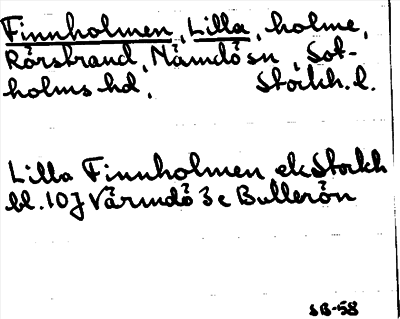 Finnholmen, Lilla, holme,
Rörstrand, Nämdö sn, Sot-
holms hd, Stockh.l.
Lilla Finnholmen ek Stockh
bl. 10J Värmdö 3c Bullerön
SB-58